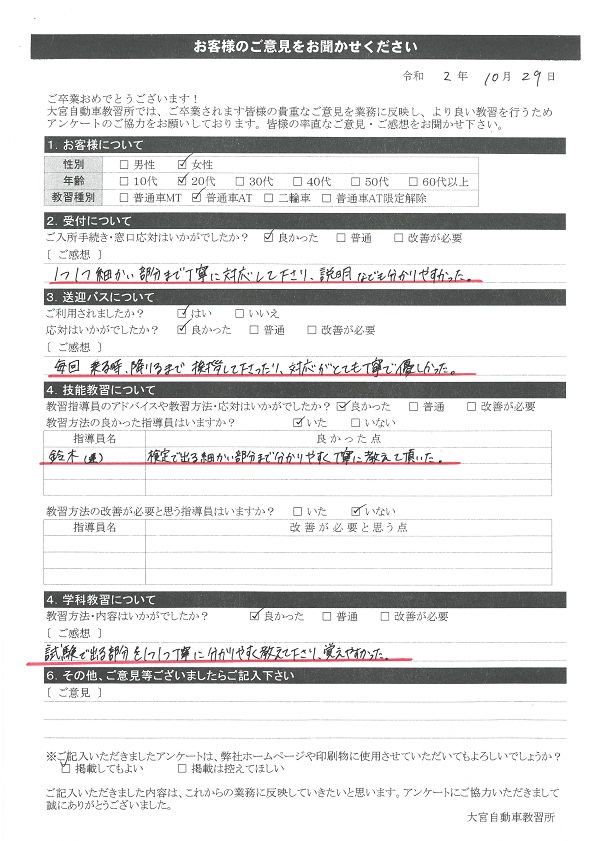 お客様のご意見をお聞かせください
令和 2 年 10 月 29 日
ご卒業おめでとうございます!
大宮自動車教習所では、ご卒業されます皆様の貴重なご意見を業務に反映し、より良い教習を行うため
アンケートのご協力をお願いしております。皆様の率直なご意見・ご感想をお聞かせ下さい。
1. お客様について
性別 □ 男性 ☑ 女性
年齢 □ 10代 ☑ 20代 □ 30代 □ 40代 □ 50代 □ 60代以上
教習種別 □ 普通車MT ☑ 普通車AT □ 二輪車 □ 普通車AT限定解除
2. 受付について
ご入所手続き・窓口応対はいかがでしたか? ☑ 良かった □ 普通 □ 改善が必要
[ ご感想 ]
1つ1つ細かい部分まで丁寧に対応して下さり、説明なども分かりやすかった。
3. 送迎バスについて
ご利用されましたか? ☑ はい □ いいえ
応対はいかがでしたか? ☑ 良かった □ 普通 □ 改善が必要
[ ご感想 ]
毎回 乗る時、降りるまで 挨拶して下さったり、対応がとても丁寧で優しかった。
4. 技能教習について
教習指導員のアドバイスや教習方法・応対はいかがでしたか? ☑ 良かった □ 普通 □ 改善が必要
教習方法の良かった指導員はいますか? ☑ いた □ いない
指導員名 良かった点
鈴木 検定で出る細かい部分まで分かりやすく丁寧に教えて頂いた。
教習方法の改善が必要と思う指導員はいますか? □ いた ☑ いない
指導員名 改善が必要と思う点
4. 学科教習について
教習方法・内容はいかがでしたか? ☑ 良かった □ 普通 □ 改善が必要
[ ご感想 ]
試験で出る部分を1つ1つ丁寧に分かりやすく教えて下さり、覚えやすかった。
6. その他、ご意見等ございましたらご記入下さい
[ ご意見 ]
※ご記入いただきましたアンケートは、弊社ホームページや印刷物に使用させていただいてもよろしいでしょうか?
☑ 掲載してもよい □ 掲載は控えてほしい
ご記入いただきました内容は、これからの業務に反映していきたいと思います。アンケートにご協力いただきまして
誠にありがとうございました。
大宮自動車教習所